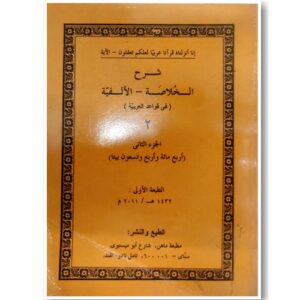 إنا أنزلناه قرآنا عربيا لعلكم تعقلون - الآية
شرح
الخلاصة - الألفية
( في قواعد العربية )
٢
الجزء الثاني
(أربع مائة وأربع وتسعون بيتا)
الطبعة الأولى:
١٤٣٢ هـ / ٢٠١١ م
الطبع والنشر:
مطبعة ماهن، شارع أبو ميستيري